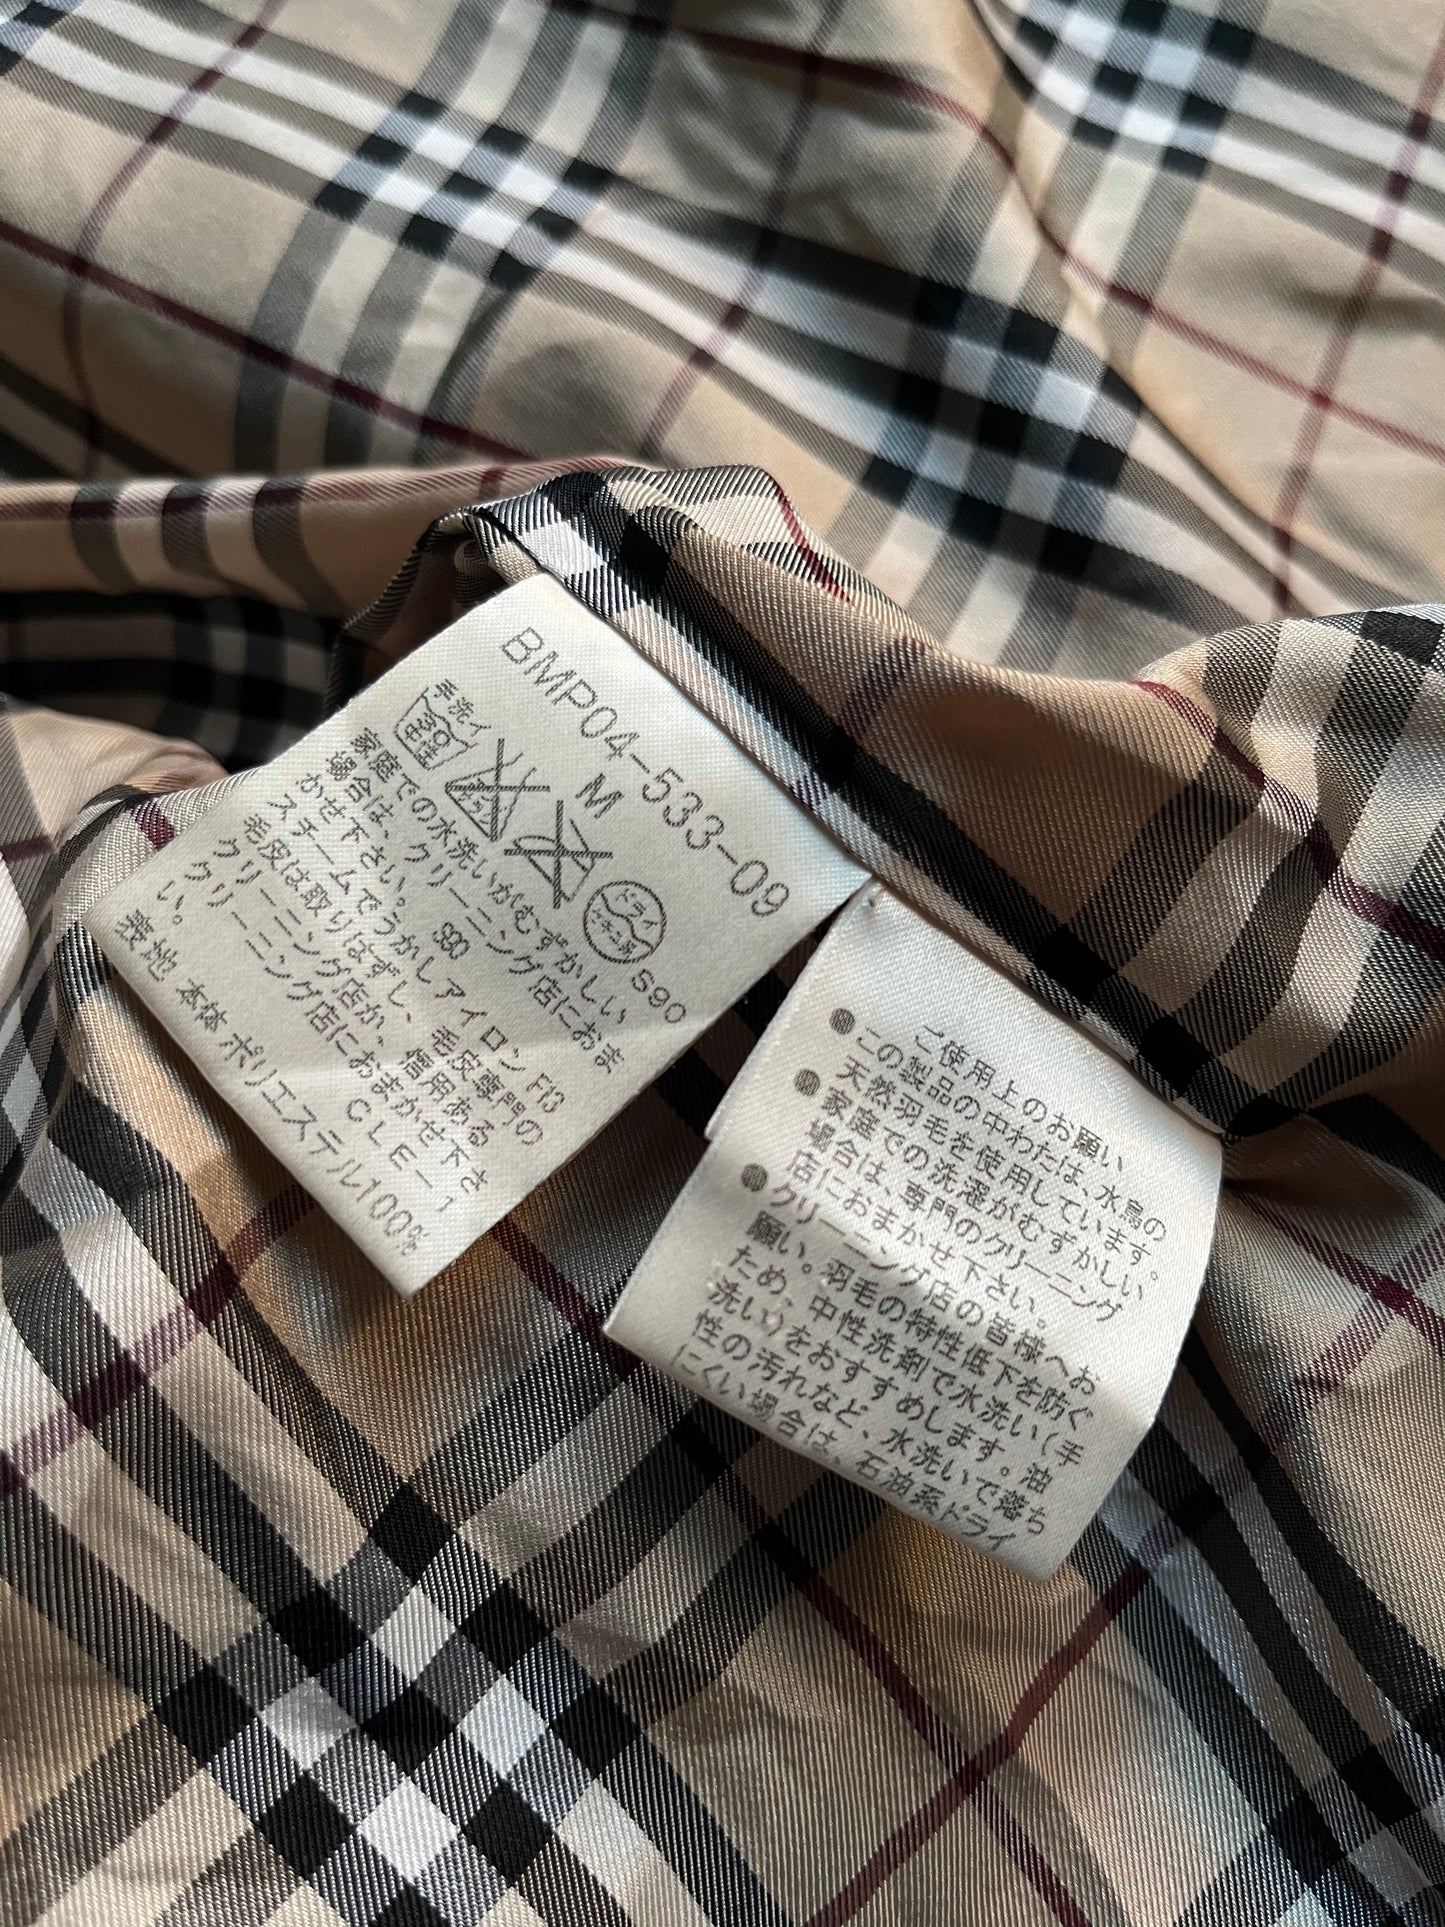 BMP04-533-09
M
手洗イ
中性
ドライ
セキユ系
S90
家庭での水洗いがむずかしい
場合は、クリーニング店におま
かせ下さい。 S90
スチームでうかしアイロン F13
毛皮は取りはずし、毛皮専門の
クリーニング店か、信用ある
クリーニング店におまかせ下さ
い。 CLE-1
表地 本体 ポリエステル100%
ご使用上のお願い
●この製品の中わたは、水鳥の
天然羽毛を使用しています。
●家庭での洗濯がむずかしい
場合は、専門のクリーニング
店におまかせ下さい。
●クリーニング店の皆様へお
願い。羽毛の特性低下を防ぐ
ため、中性洗剤で水洗い(手
洗い)をおすすめします。油
性の汚れなど、水洗いで落ち
にくい場合は、石油系ドライ